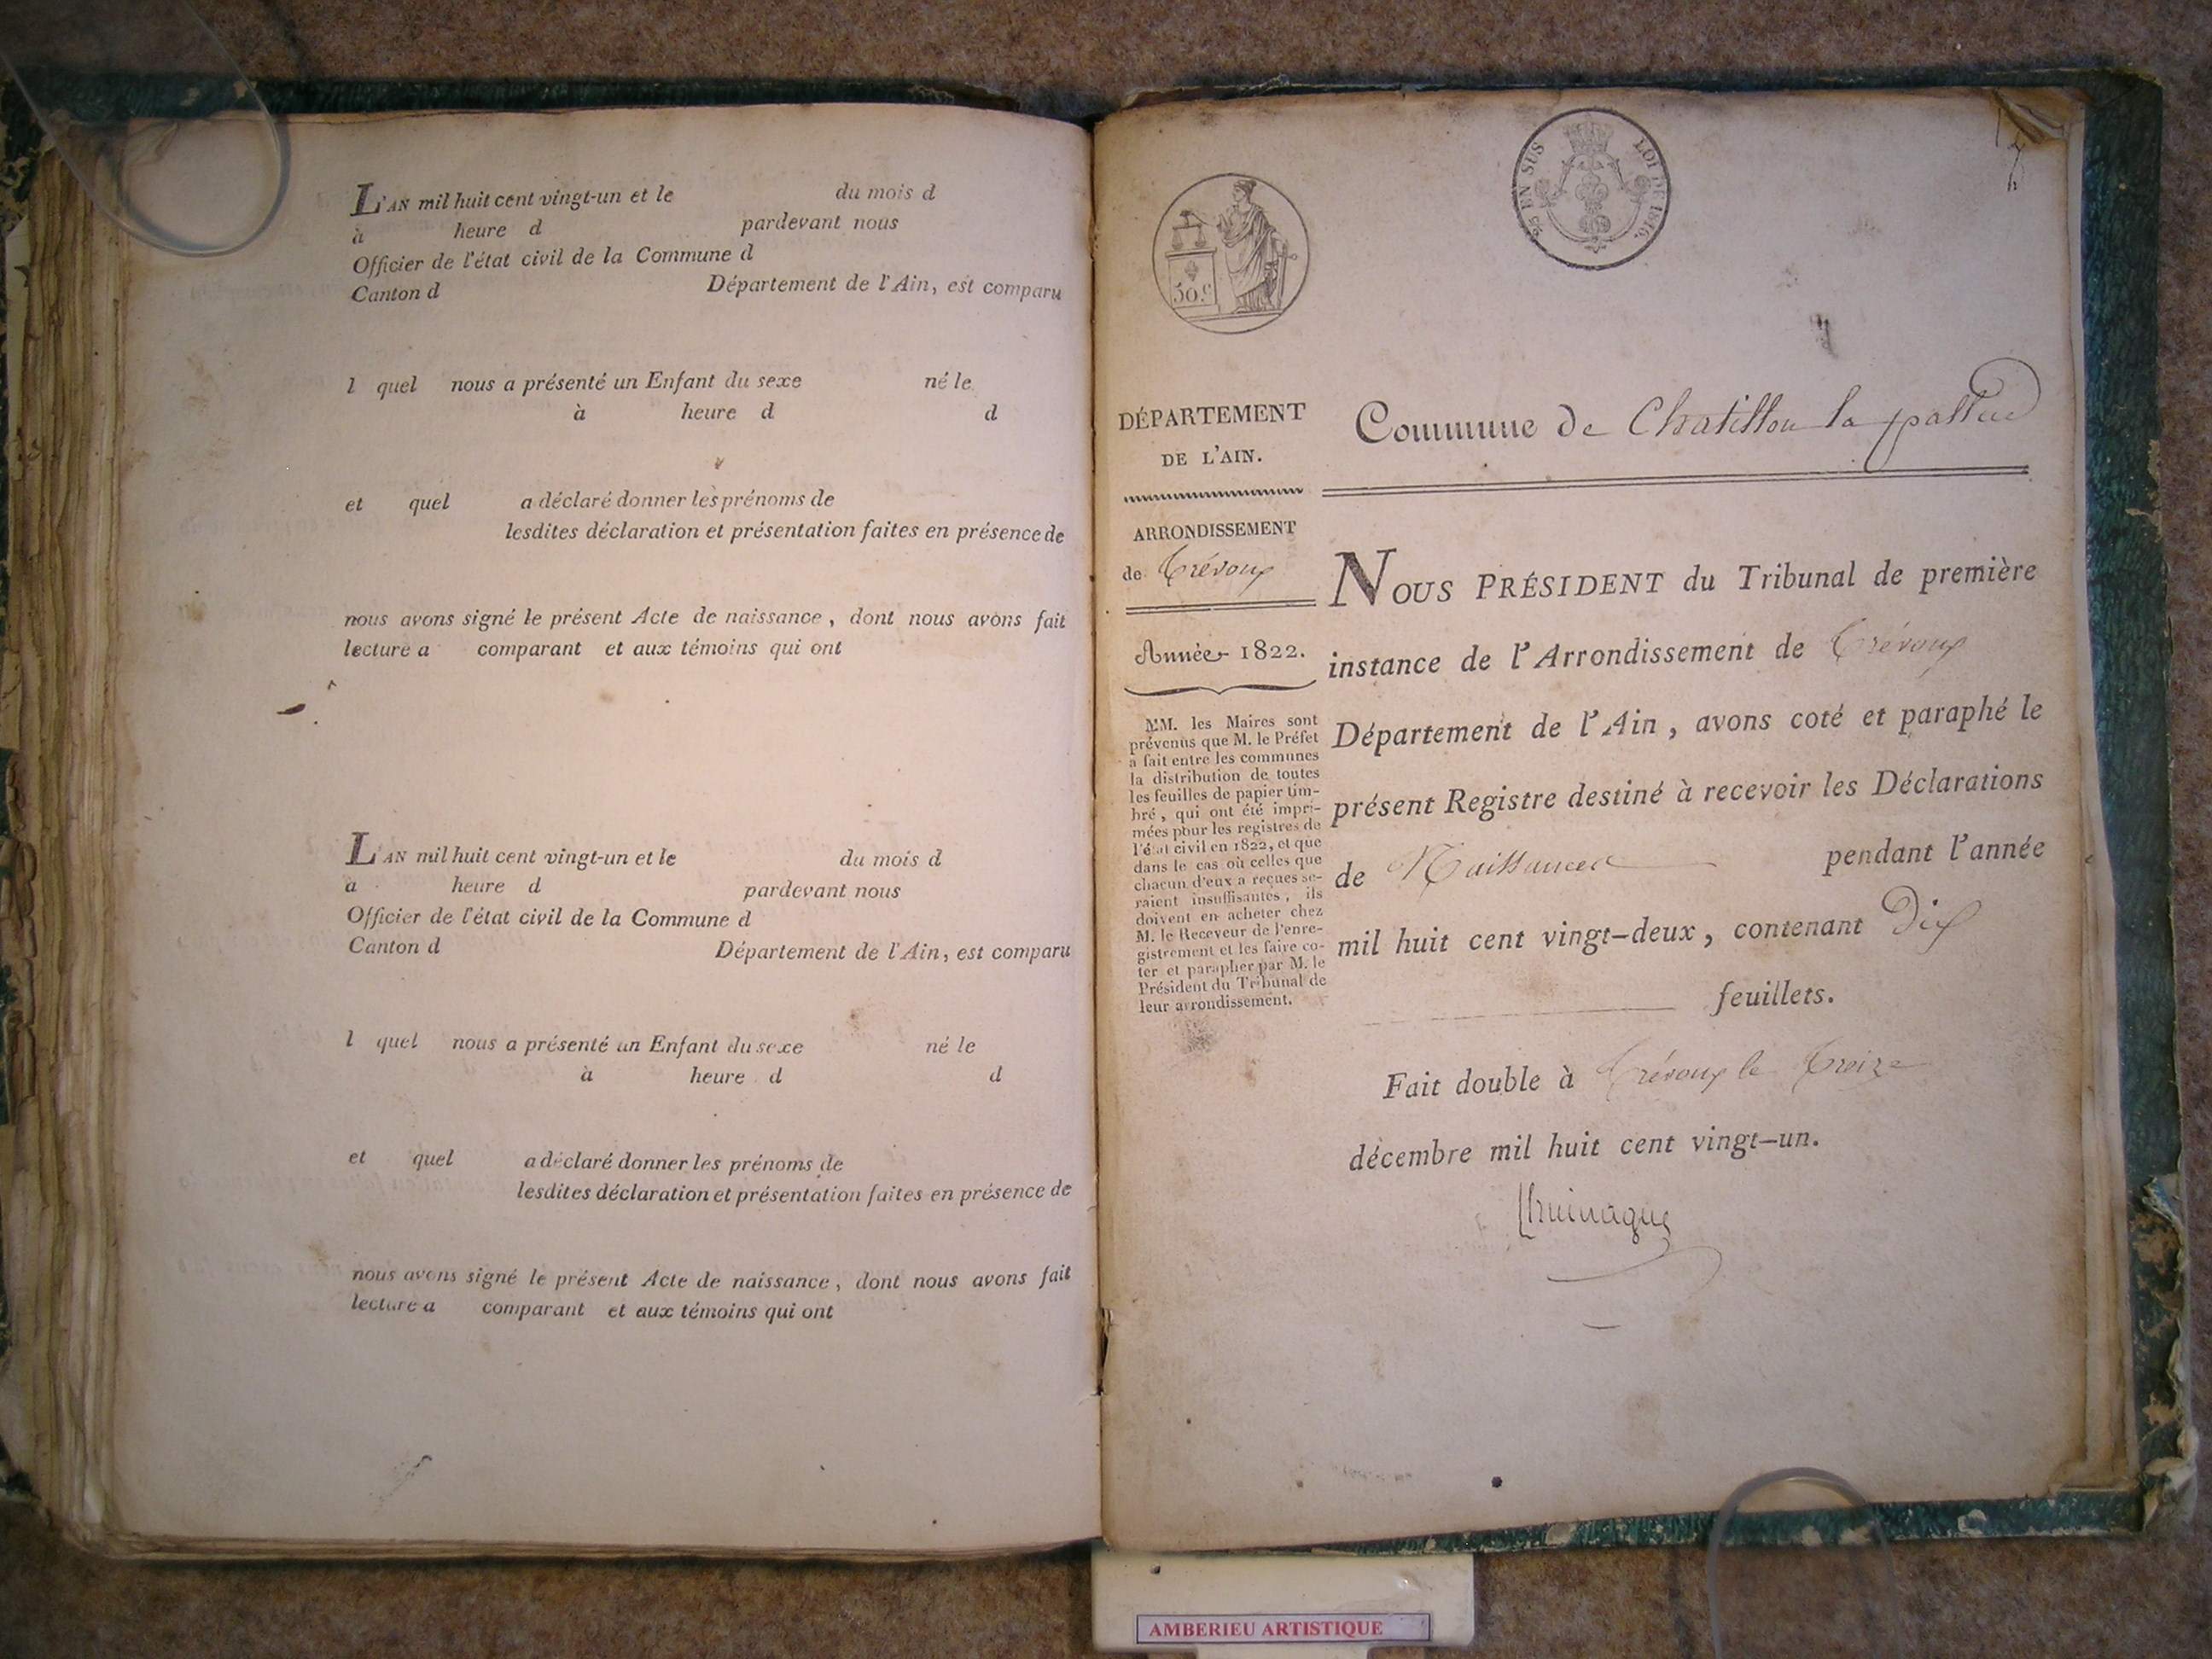 L'AN mil huit cent vingt-un et le du mois d
à heure d pardevant nous
Officier de l'état civil de la Commune d
Canton d Département de l'Ain, est comparu
l quel nous a présenté un Enfant du sexe né le
à heure d d
et quel a déclaré donner les prénoms de
lesdites déclaration et présentation faites en présence de
nous avons signé le présent Acte de naissance, dont nous avons fait
lecture a comparant et aux témoins qui ont
L'AN mil huit cent vingt-un et le du mois d
à heure d pardevant nous
Officier de l'état civil de la Commune d
Canton d Département de l'Ain, est comparu
l quel nous a présenté un Enfant du sexe né le
à heure d d
et quel a déclaré donner les prénoms de
lesdites déclaration et présentation faites en présence de
nous avons signé le présent Acte de naissance, dont nous avons fait
lecture a comparant et aux témoins qui ont
25 EN SUS LOI DE 1816.
50.c
DÉPARTEMENT
DE L'AIN.
ARRONDISSEMENT
de Trévoux
Année 1822.
MM. les Maires sont
prévenus que M. le Préfet
a fait entre les communes
la distribution de toutes
les feuilles de papier tim-
bré, qui ont été impri-
mées pour les registres de
l'état civil en 1822, et que
dans le cas où celles que
chacun d'eux a reçues se-
raient insuffisantes, ils
doivent en acheter chez
M. le Receveur de l'enre-
gistrement et les faire co-
ter et parapher par M. le
Président du Tribunal de
leur arrondissement.
Commune de Chatillon la pallud
NOUS PRÉSIDENT du Tribunal de première
instance de l'Arrondissement de Trévoux
Département de l'Ain, avons coté et paraphé le
présent Registre destiné à recevoir les Déclarations
de Naissances pendant l'année
mil huit cent vingt-deux, contenant Dix
feuillets.
Fait double à Trévoux le Treize
décembre mil huit cent vingt-un.
AMBERIEU ARTISTIQUE